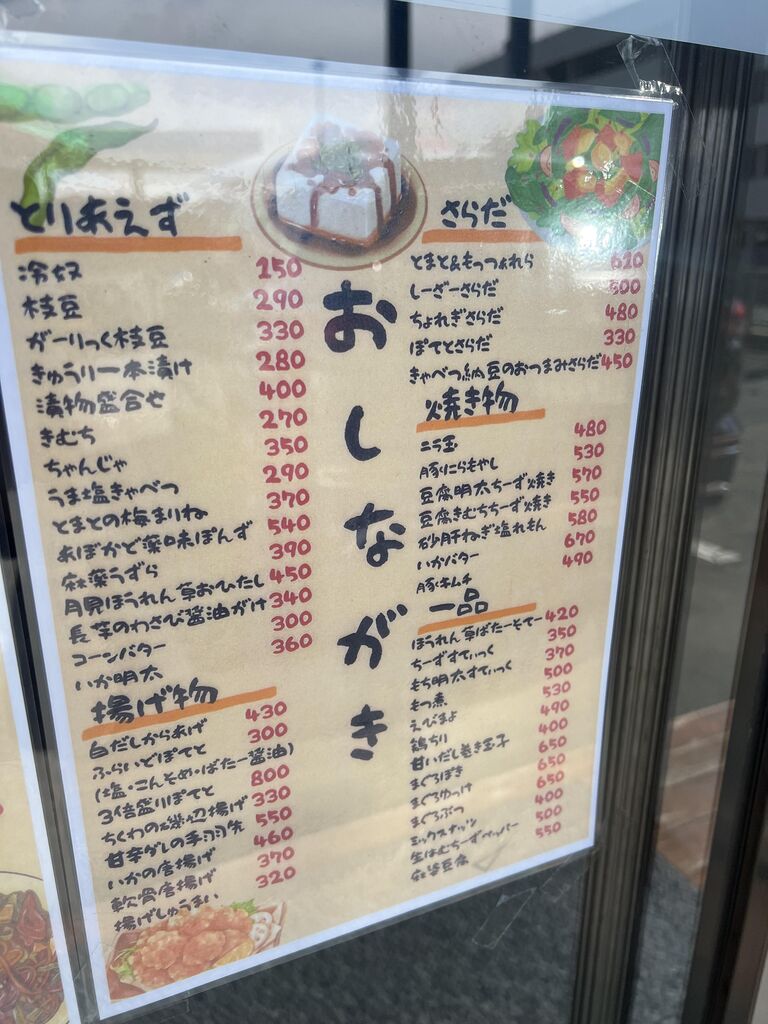 おしながき
とりあえず
冷奴 250
枝豆 290
がーりっく枝豆 330
きゅうり一本漬け 280
漬物盛合せ 400
きむち 270
ちゃんじゃ 350
うま塩きゃべつ 290
とまとの梅まりね 370
あぼかど薬味ぽんず 540
麻薬うずら 390
月見ほうれん草おひたし 450
長芋のわさび醤油がけ 340
コーンバター 300
いか明太 360
揚げ物
白だしからあげ 430
ふらいどぽてと 300
(塩・こんそめ・ばたー醤油)
3倍盛りぽてと 800
ちくわの磯辺揚げ 330
甘辛ダレの手羽先 550
いかの唐揚げ 460
軟骨唐揚げ 370
揚げしゅうまい 320
さらだ
とまと&もっつぁれら 620
しーざーさらだ 500
ちょれぎさらだ 480
ぽてとさらだ 330
きゃべつ納豆のおつまみさらだ 450
焼き物
ニラ玉 480
豚にらもやし 530
豆腐明太ちーず焼き 570
豆腐きむちちーず焼き 550
砂肝ねぎ塩れもん 580
いかバター 670
豚キムチ 490
一品
ほうれん草ばたーそてー 420
ちーずすてぃっく 350
もち明太すてぃっく 370
もつ煮 500
えびまよ 530
鶏ちり 490
甘いだし巻き玉子 400
まぐろぽき 650
まぐろゆっけ 650
まぐろぶつ 650
ミックスナッツ 400
生はむちーずペッパー 500
麻婆豆腐 550